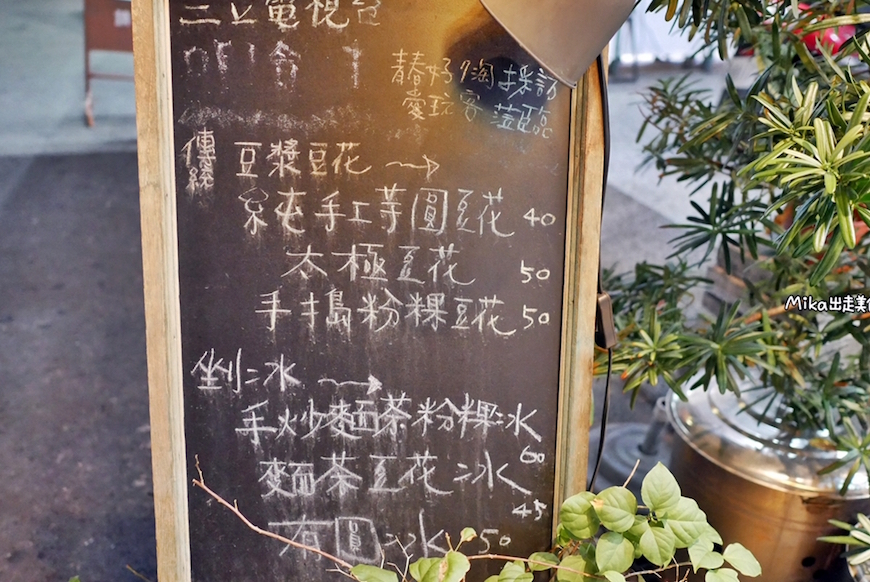 三立電視台
青春好7淘 採訪
愛玩客 蒞臨
傳統 豆漿豆花
純手工芋圓豆花 40
太極豆花 50
手搗粉粿豆花 50
剉冰
手炒麵茶粉粿冰 60
麵茶豆花冰 45
冰 50
Mika出走美